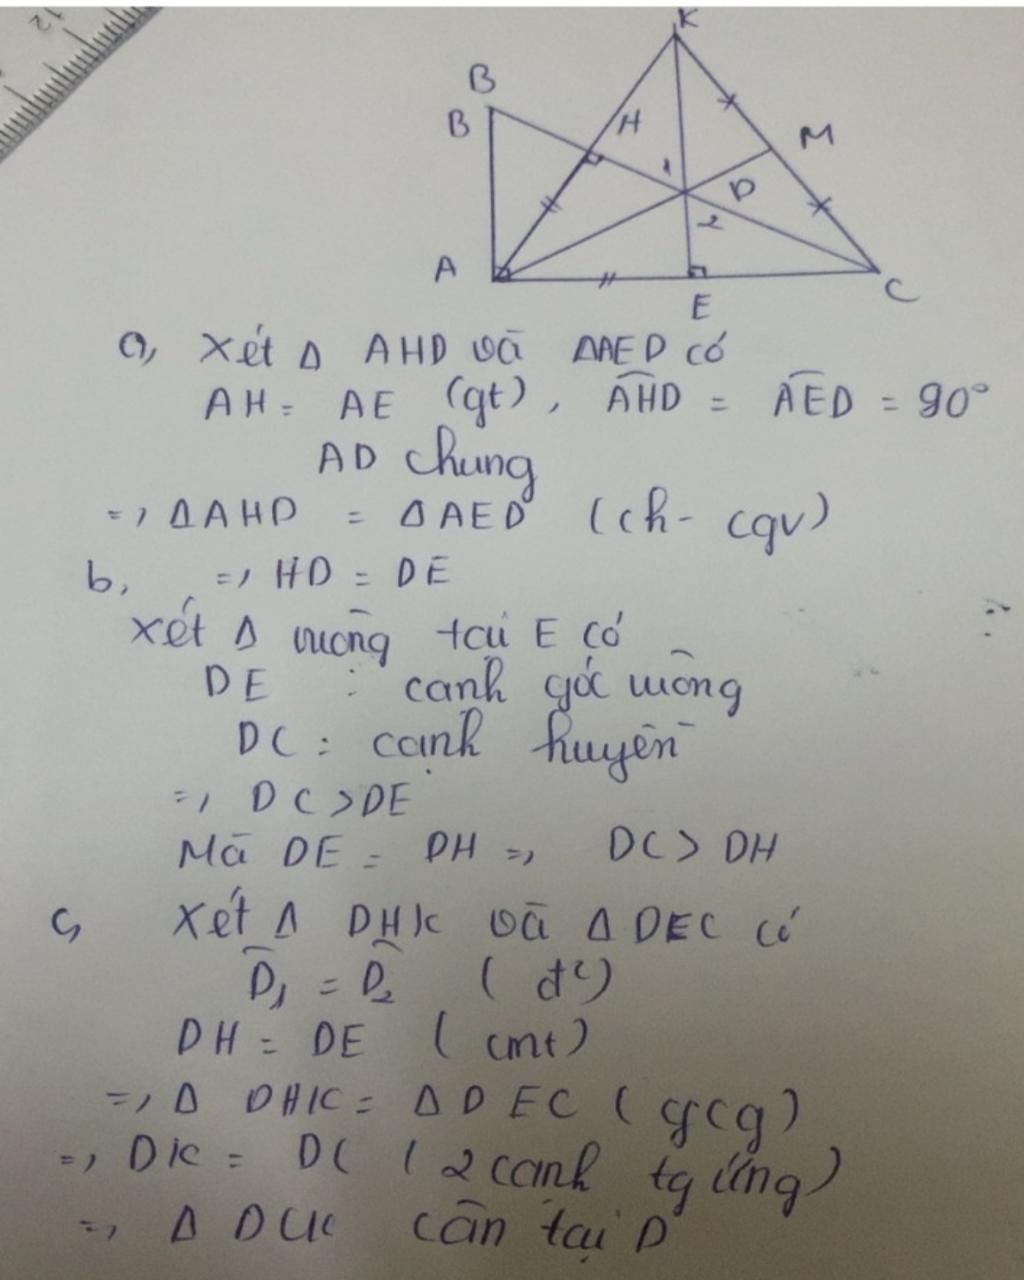 12
K
B
B
H
M
1
D
2
A
E
C
a, Xét Δ AHD và ΔAED có
AH = AE (gt), AHD = AED = 90°
AD chung
=> ΔAHD = ΔAED (ch - cgv)
b, => HD = DE
Xét Δ vuông tại E có
DE : cạnh góc vuông
DC : cạnh huyền
=> DC > DE
Mà DE = DH => DC > DH
c, Xét Δ DHK và Δ DEC có
D1 = D2 (đ²)
DH = DE (cmt)
=> Δ DHK = Δ DEC (gcg)
=> DK = DC (2 cạnh tg ứng)
=> Δ DCK cân tại D